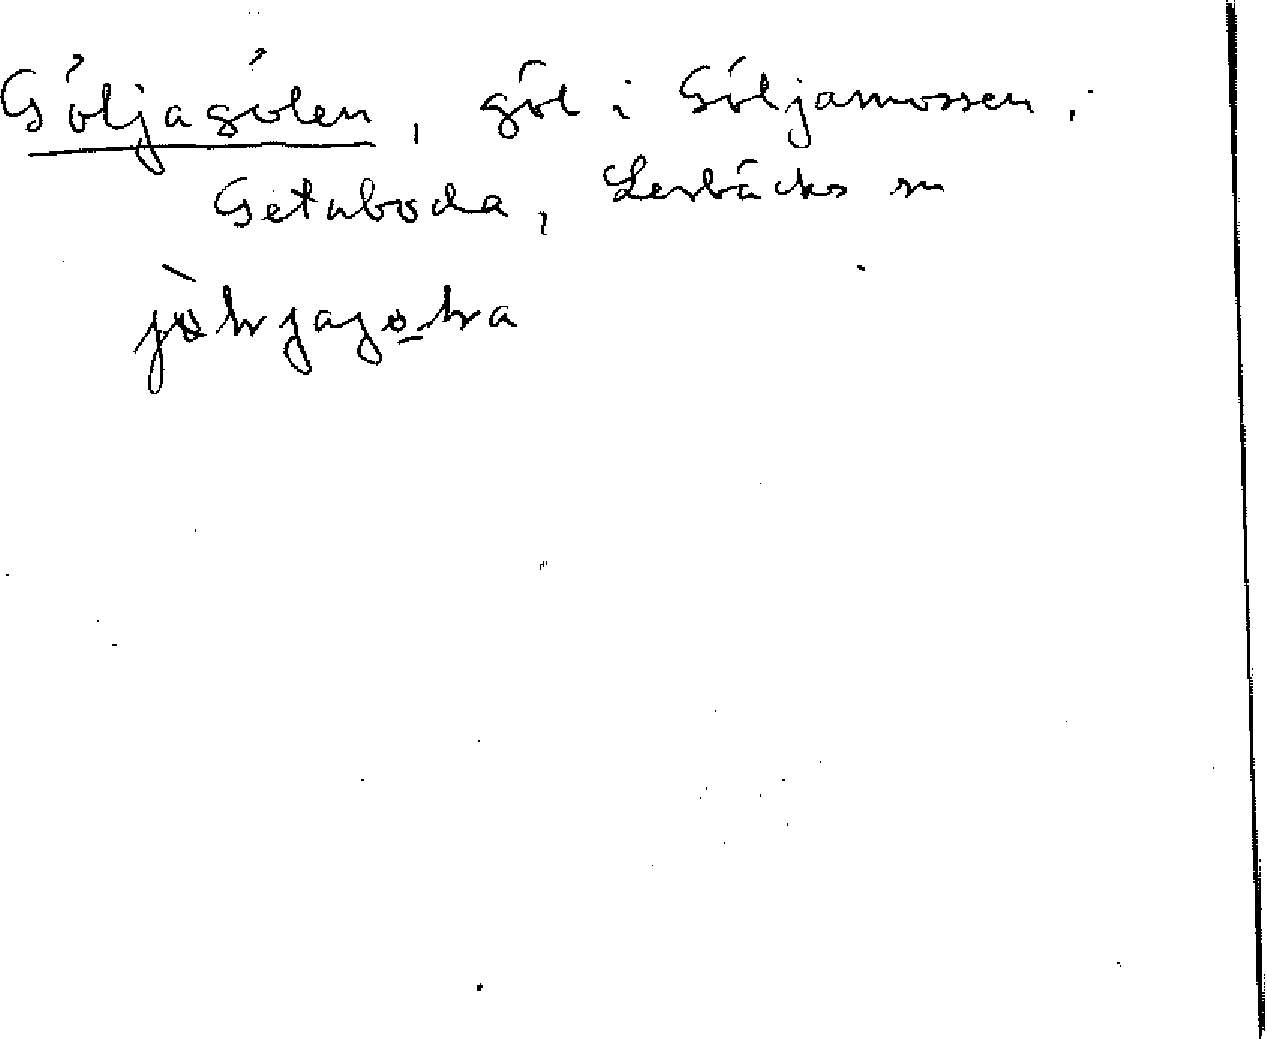 Göljagölen, göl i Göljamossen,
Getaboda, Lerbäcks sn